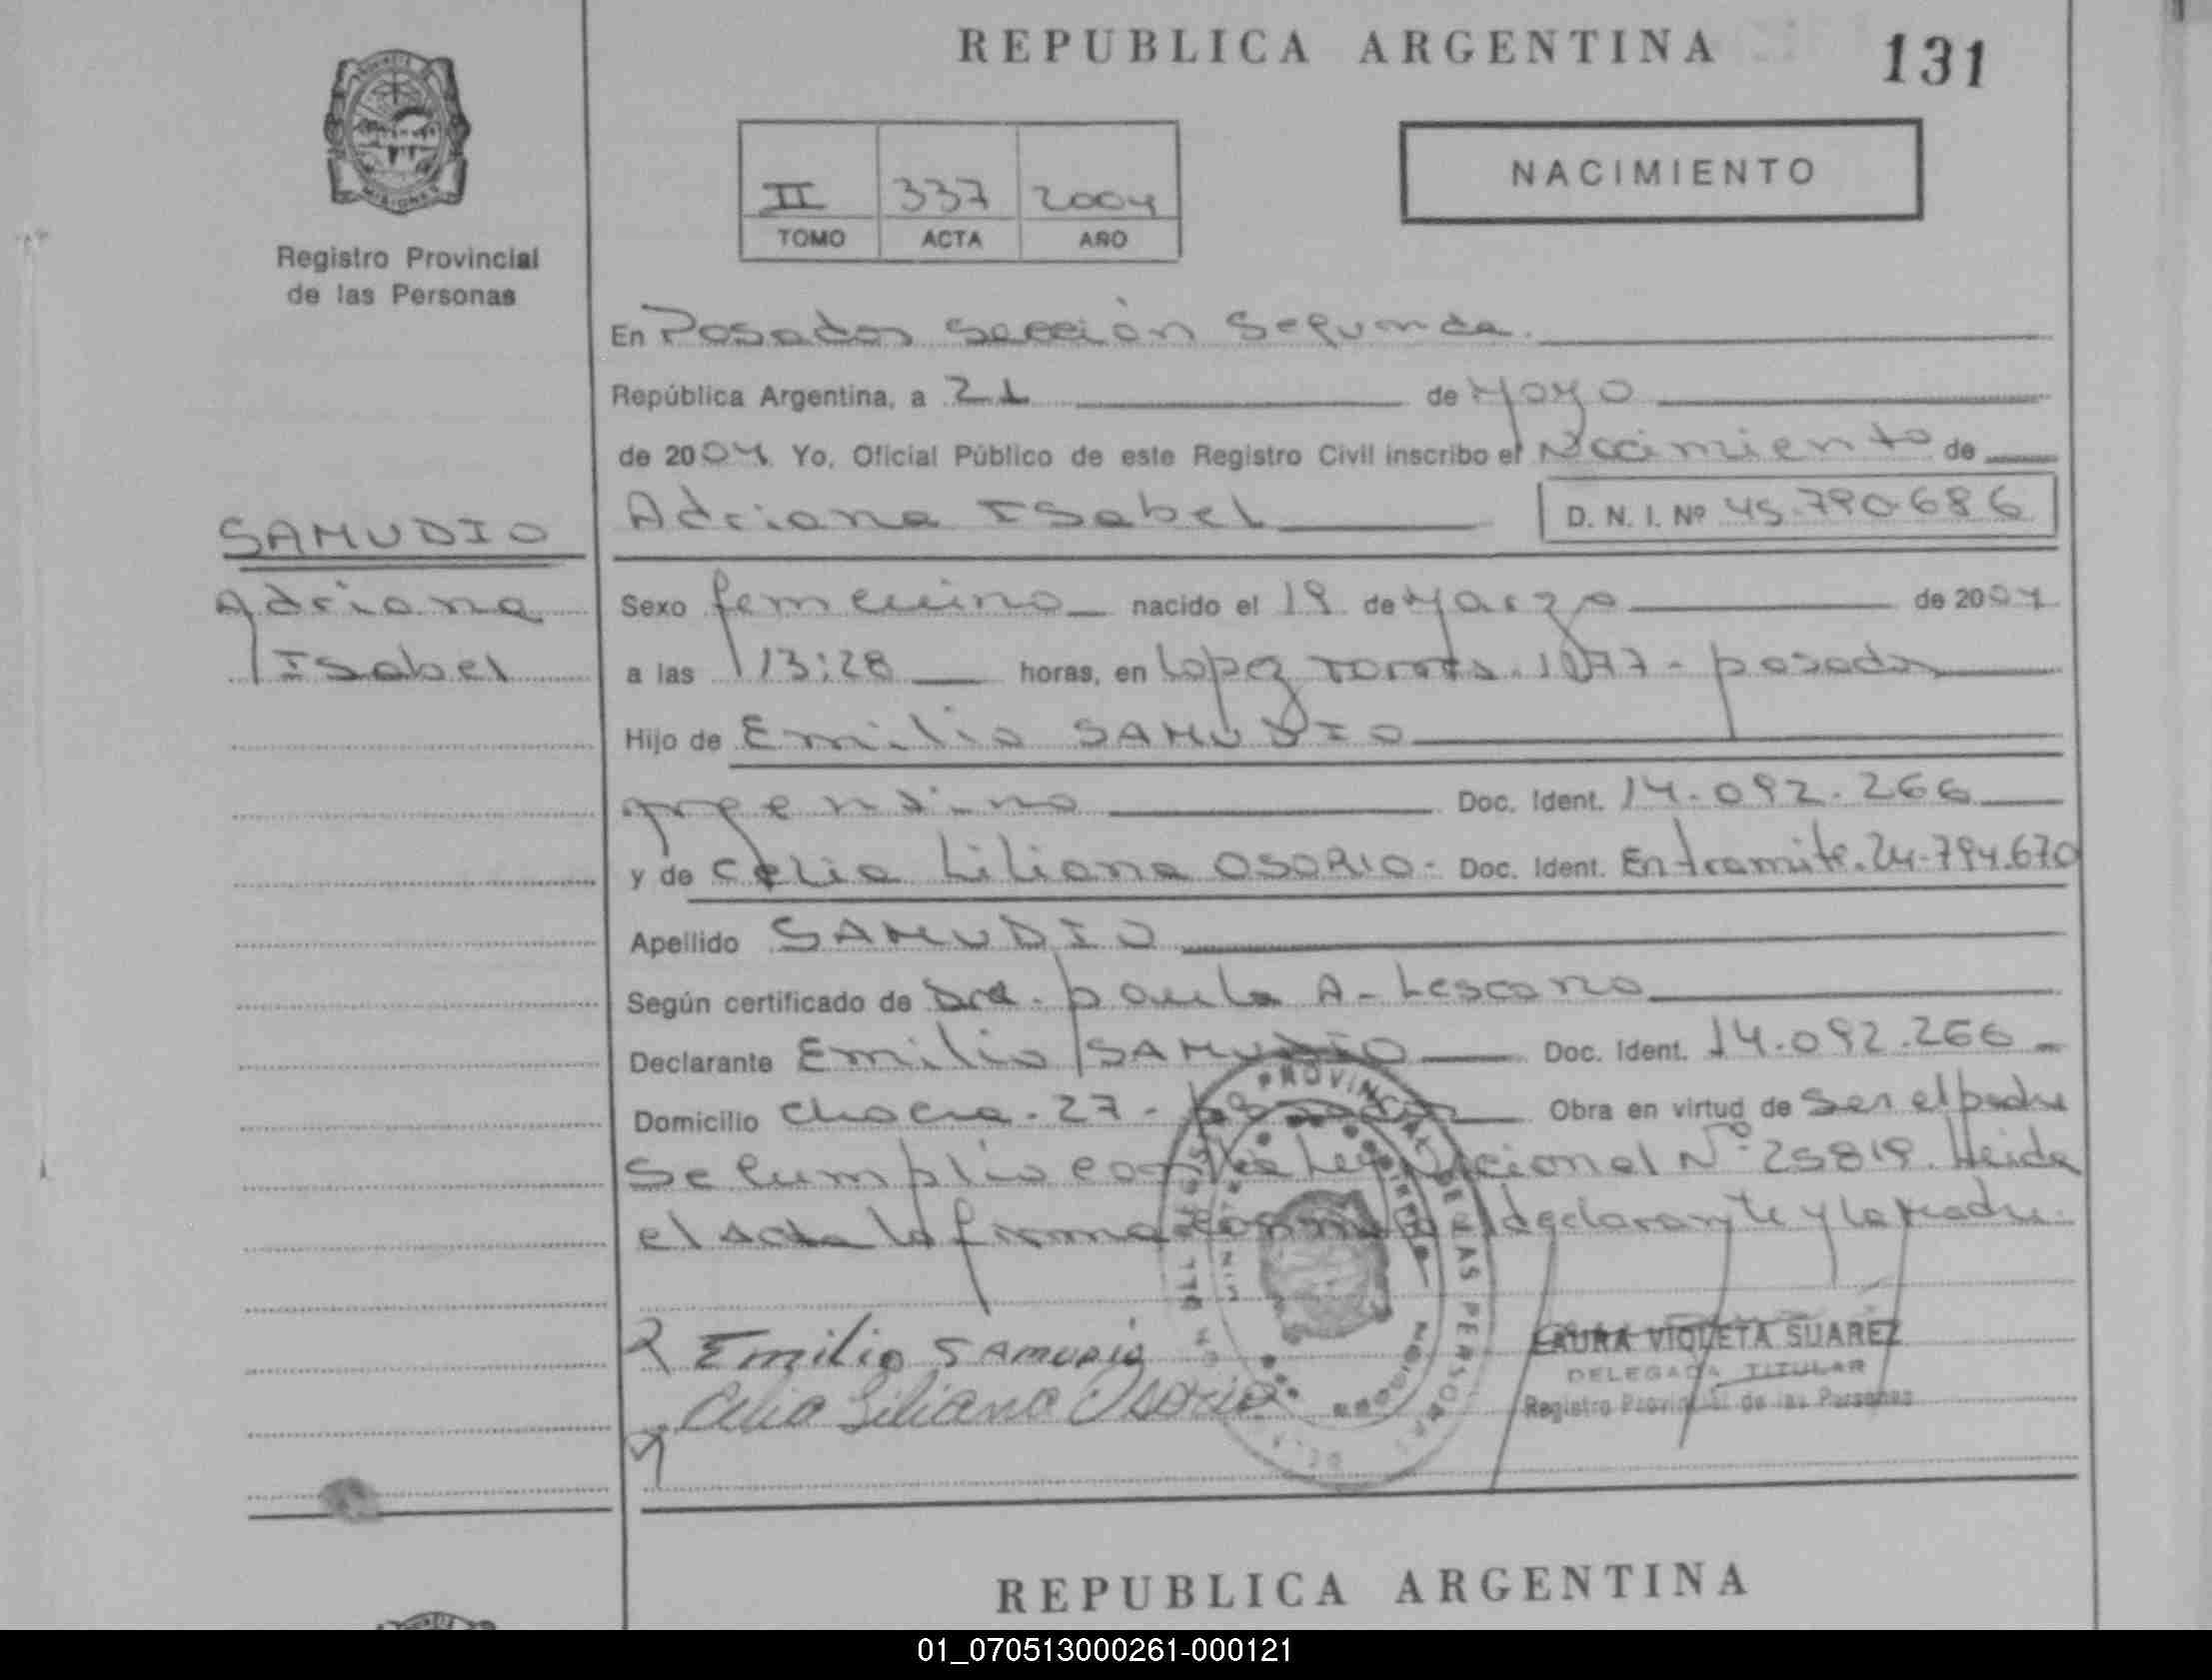 REPUBLICA ARGENTINA
131
NACIMIENTO
II 337 2004
TOMO ACTA AÑO
Registro Provincial
de las Personas
En Posadas sección Segunda.
República Argentina, a 21 de Mayo
de 2004 Yo, Oficial Público de este Registro Civil inscribo el Nacimiento de
Adriana Isabel D. N. I. Nº 45.790.686
SAMUDIO
Adriana
Isabel
Sexo femenino nacido el 19 de Marzo de 2004
a las 13:28 horas, en Lopez Torres. 1077 - posadas
Hijo de Emilio SAMUDIO
argentino Doc. Ident. 14.092.266
y de Celia Liliana OSORIO- Doc. Ident. En tramite. 24-794.670
Apellido SAMUDIO
Según certificado de Dra. paula A- Lescano
Declarante Emilio SAMUDIO Doc. Ident. 14.092.266
Domicilio chacra. 27 - posadas Obra en virtud de ser el padre
Se cumplio con la Ley Nacional Nº 25819. Leida
el acta la firma conmigo el declarante y la Madre.
Emilio SAMUDIO
Celia Liliana Osorio
LAURA VIOLETA SUAREZ
DELEGADA TITULAR
Registro Provincial de las Personas
REPUBLICA ARGENTINA
01_070513000261-000121